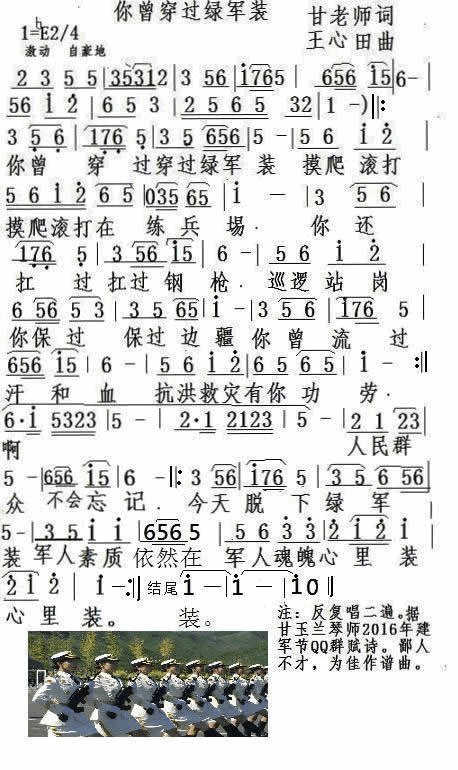 你曾穿过绿军装
1=ᵇE2/4
甘老师词
激动 自豪地
王心田曲
2 3 5 5 | 35312 | 3 56 | i765 | 656 i5 | 6- |
56 i 2 | 6 5 3 | 2 5 6 5 32 | 1 -) |:
3 5 6 | 176 5 | 3 5 656 | 5 - | 5 6 i 2 |
你曾 穿 过穿过绿军 装 摸爬 滚打
5 6 i 2 6 5 | 035 65 | i - | 3 5 6 |
摸爬滚打在 练兵場. 你还
176 5 | 3 56 i5 | 6 - | 5 6 i 2 |
扛 过扛过钢枪. 巡逻站岗
6 56 5 3 | 3 5 65 | i - | 3 5 6 | i76 5 |
你保过 保过边疆你曾流过
656 i5 | 6 - | 5 6 i 2 | 6 5 6 5 | i - :||
汗和血 抗洪救灾有你功劳.
6·i 5323 | 5 - | 2·1 2123 | 5 - | 2 1 23 |
啊 人民群
5 - | 656 i5 | 6 - :| 3 56 | i76 5 | 3 5 6 56 |
众 不会忘记. 今天脱下绿军
5 - | 3 5 i i | 656 5 | 5 6 3 3 | 2 i 2 i |
装 军人素质 依然在 军人魂魄心里装
2 i 2 | i - :|| 结尾 i - | i - | i0 ||
心里装。 装。
注：反复唱二遍。据
甘玉兰琴师2016年建
军节QQ群赋诗。鄙人
不才，为佳作谱曲。